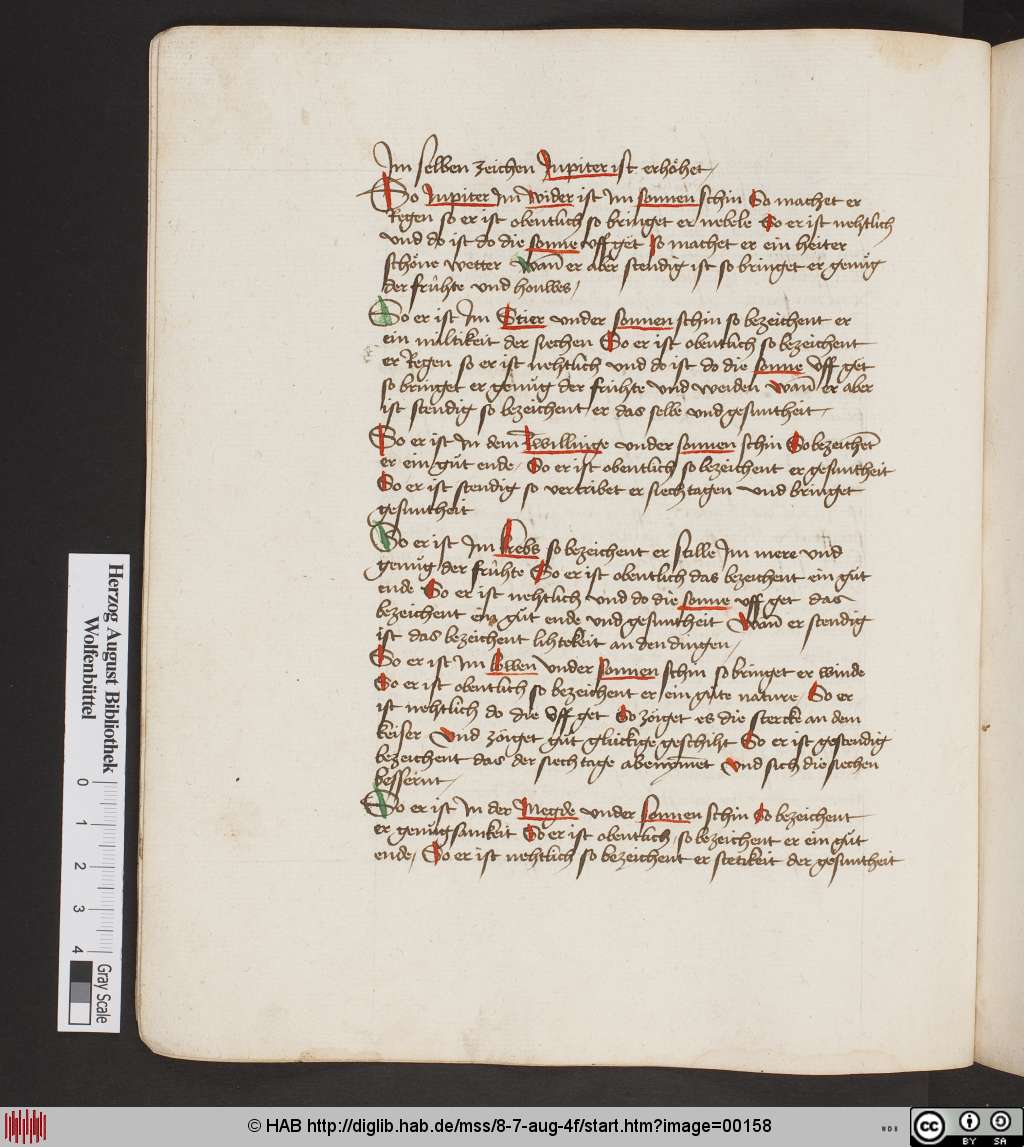 Im selben zeichen Jupiter ist erhöhet
So Jupiter Im wider ist Im sonnen schin So machet er
Regen so er ist obentlich so bringet er nebele So er ist nehtlich
vnd do ist do die sonne vff get so machet er ein heiter
schöne wetter wan̄ er aber stendig ist so bringet er genůg
der frúhte vnd houwes
So er ist Im Stier vnder sonnen schin so bezeichent er
ein miltikeit der siechen So er ist obentlich so bezeichent
er Regen so er ist nehtlich vnd do ist do die sonne vff get
so bringet er genůg der frúhte vnd weiden wan̄ er aber
ist stendig so bezeichent er das selbe vnd gesuntheit
So er ist In dem Zwillinge vnder sonnen schin So bezeichet̄
er ein gůt ende So er ist obentlich so bezeichent er gesuntheit
So er ist stendig so vertribet er siechtagen vnd bringet
gesuntheit
So er ist Im krebs so bezeichent er stille Im mere vnd
genůg der frúhte So er ist obentlich das bezeichent ein gůt
ende So er ist nehtlich vnd do die sonne vff get das
bezeichent ein gůt ende vnd gesuntheit Wan̄ er stendig
ist das bezeichent lihtekeit an den dingen
So er ist Im Lowen vnder sonnen schin so bringet er winde
So er ist obentlich so bezeichent er ein gute nature So er
ist nehtlich do die vff get So zöiget es die stercke an dem
keiser Vnd zöiget gůt glückige geschiht So er ist gestendig
bezeichent das der siechtage abenym̄et Vnd sich die siechen
bessernt
So er ist In der Megde vnder Sonnen schin So bezeichent
er genůgsamkeit So er ist obentlich so bezeichent er ein gůt
ende So er ist nehtlich so bezeichent er stetikeit der gesuntheit
Herzog August Bibliothek
Wolfenbüttel
0 1 2 3 4
Gray Scale
© HAB http://diglib.hab.de/mss/8-7-aug-4f/start.htm?image=00158
WDB
cc BY SA